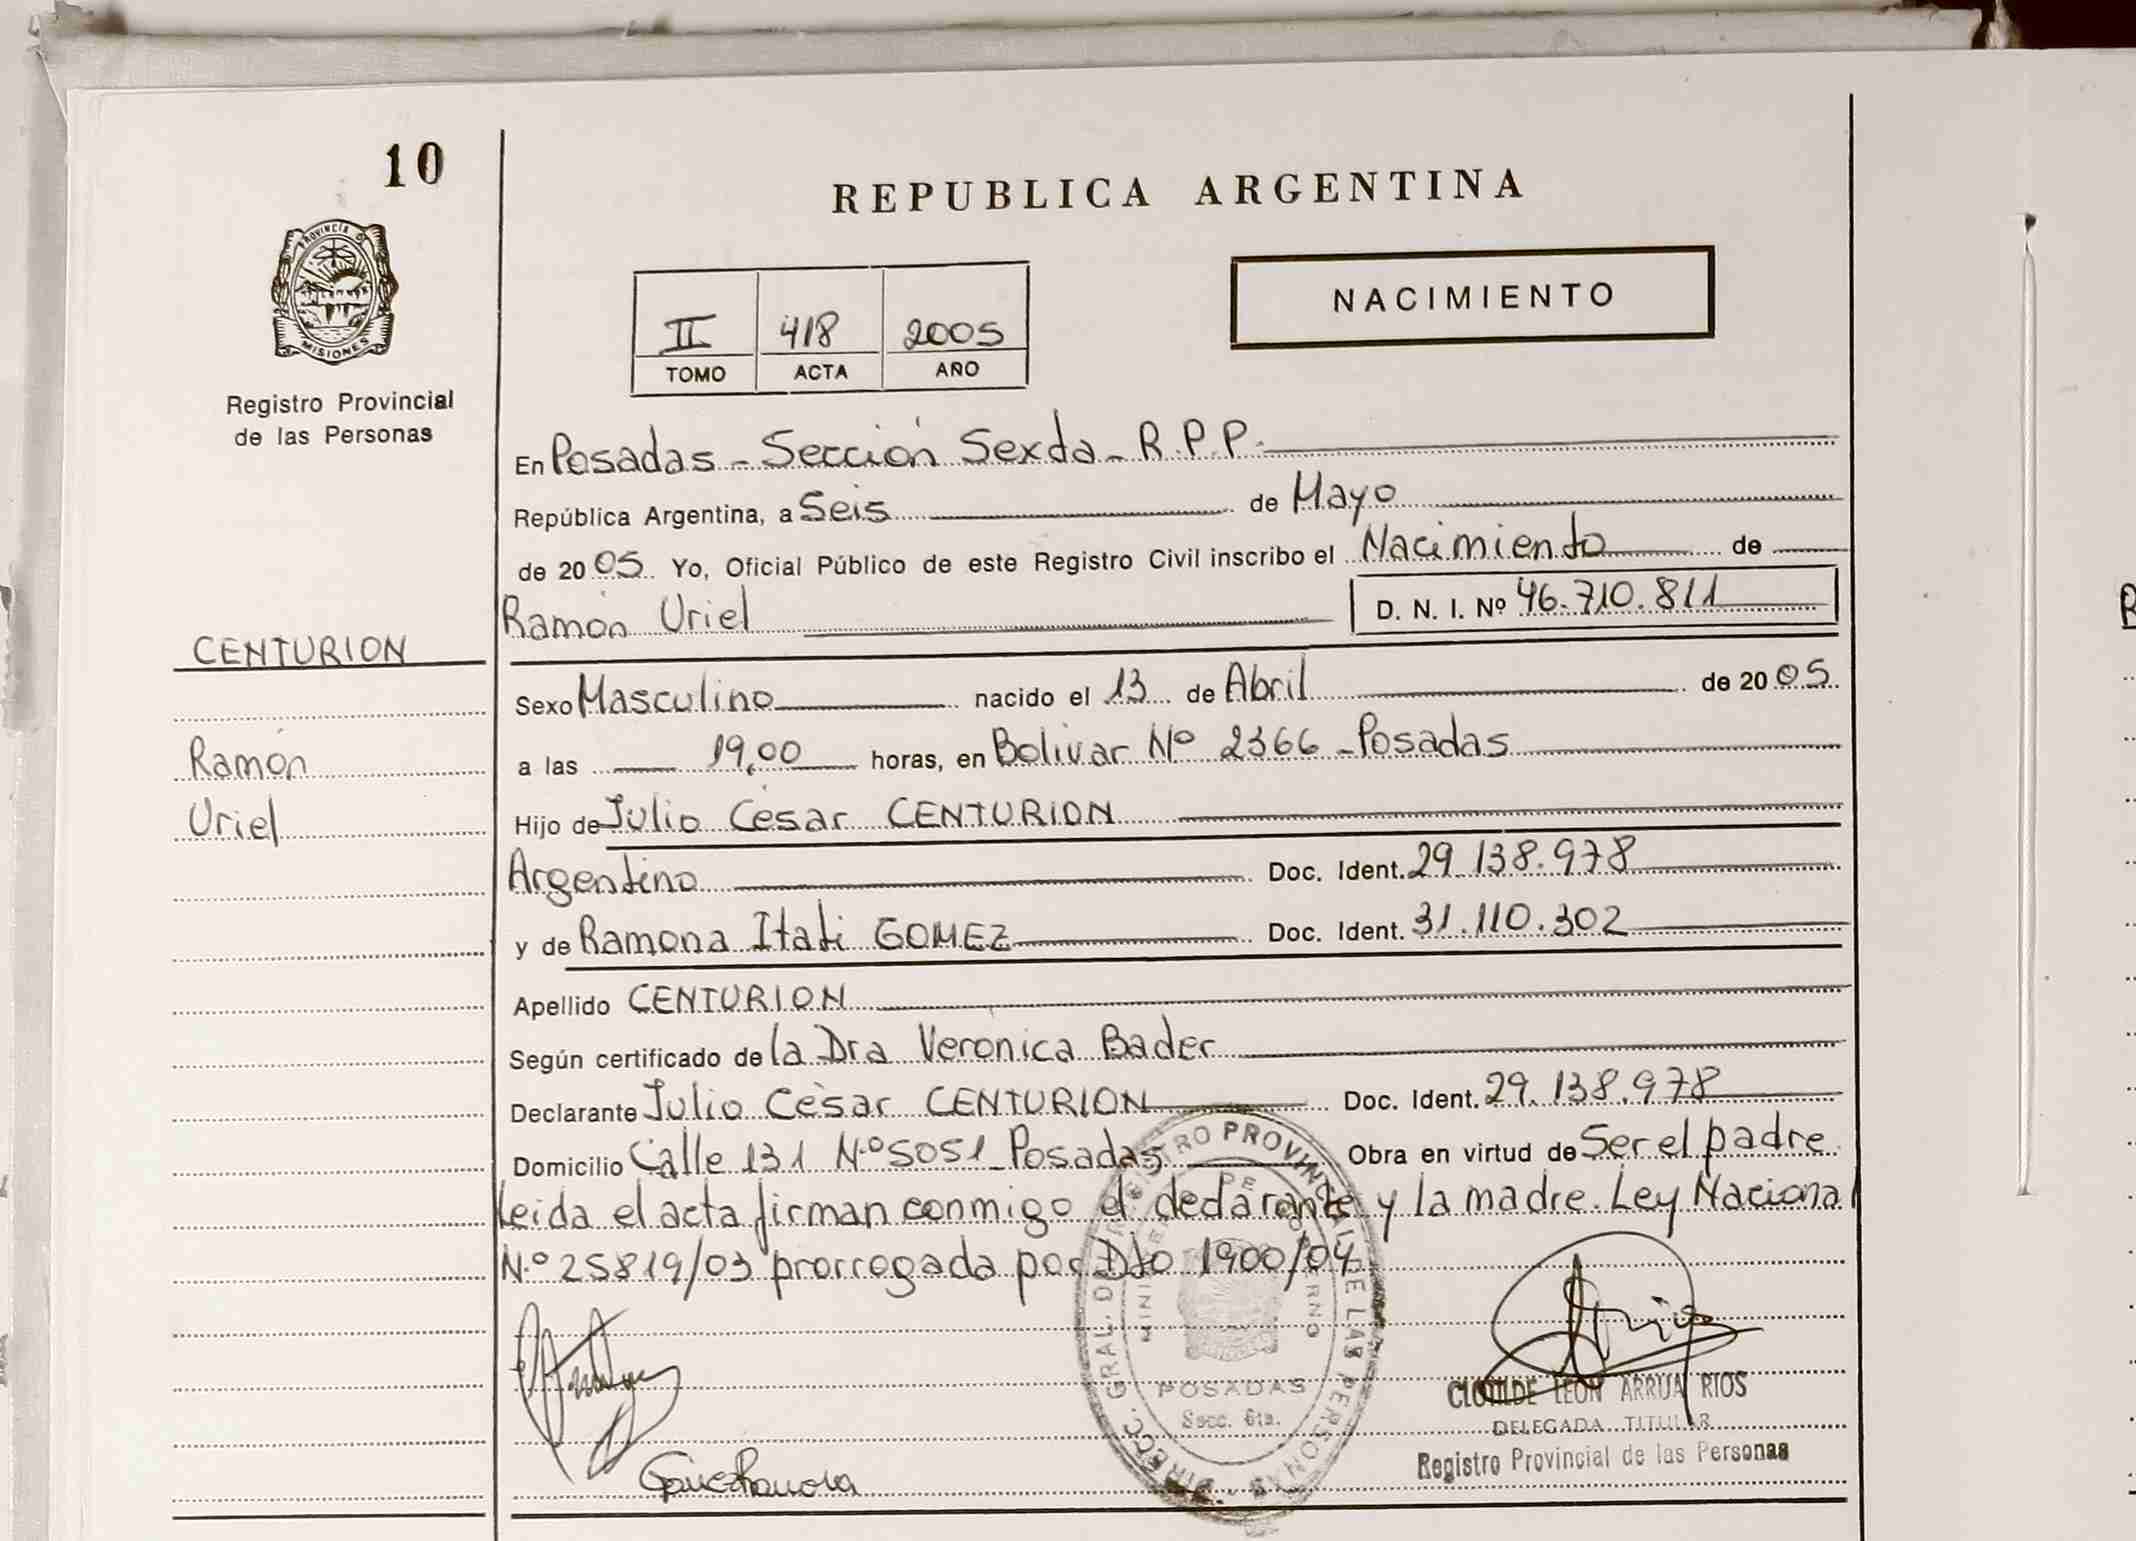 10
PROVINCIA D
MISIONES
Registro Provincial
de las Personas
REPUBLICA ARGENTINA
NACIMIENTO
II 418 2005
TOMO ACTA AÑO
En Posadas - Sección Sexta - R.P.P.
República Argentina, a Seis de Mayo
de 20 05 Yo, Oficial Público de este Registro Civil inscribo el Nacimiento de
Ramón Uriel D. N. I. Nº 46.710.811
CENTURION
Ramón
Uriel
Sexo Masculino nacido el 13 de Abril de 20 05
a las 19,00 horas, en Bolivar Nº 2366 - Posadas
Hijo de Julio César CENTURION
Argentino Doc. Ident. 29.138.978
y de Ramona Itati GOMEZ Doc. Ident. 31.110.302
Apellido CENTURION
Según certificado de la Dra Veronica Bader
Declarante Julio Cèsar CENTURION Doc. Ident. 29.138.978
Domicilio Calle 131 N.º 5051 - Posadas Obra en virtud de Ser el padre
leida el acta firman conmigo el declarante y la madre. Ley Nacional
N.º 25819/03 prorrogada por Dto 1900/04
DIRECC. GRAL. DEL REGISTRO PROVINCIAL DE LAS PERSONAS
MINISTERIO DE GOBIERNO
POSADAS
Secc. 6ta.
CLOTILDE LEON ARRUA RIOS
DELEGADA TITULAR
Registro Provincial de las Personas